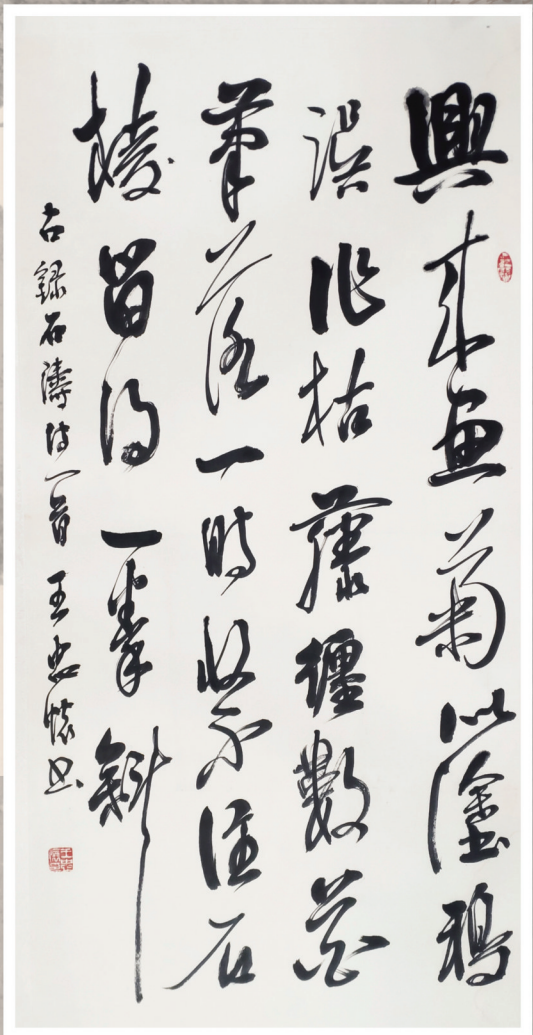 興來畫菊似塗鴉
誤作枯藤纏數花
筆落一時收不住石
棱留得一拳斜
右錄石濤詩一首 王忠懷書